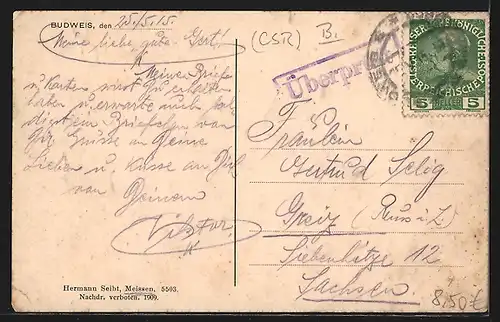 BUDWEIS, den 25./5.15.
Meine liebe, gute Gertl!
Meine Briefe
u. Karten wirst Du erhalten
haben u. erwarte auch bal
digst ein Brieferl von
Dir. Grüsse an Deine
Lieben u. Küsse an Dich
von Deinem
Viktor
Hermann Seibt, Meissen, 5593.
Nachdr. verboten. 1909.
(CSR) B.
Überprüft
KAISERLICHE KÖNIGLICHE
ÖSTERREICHISCHE
5 HELLER 5
Fräulein
Gertrud Selig
Greiz (Reuss ä. L.)
Siebenhitze 12
Sachsen
8,50€